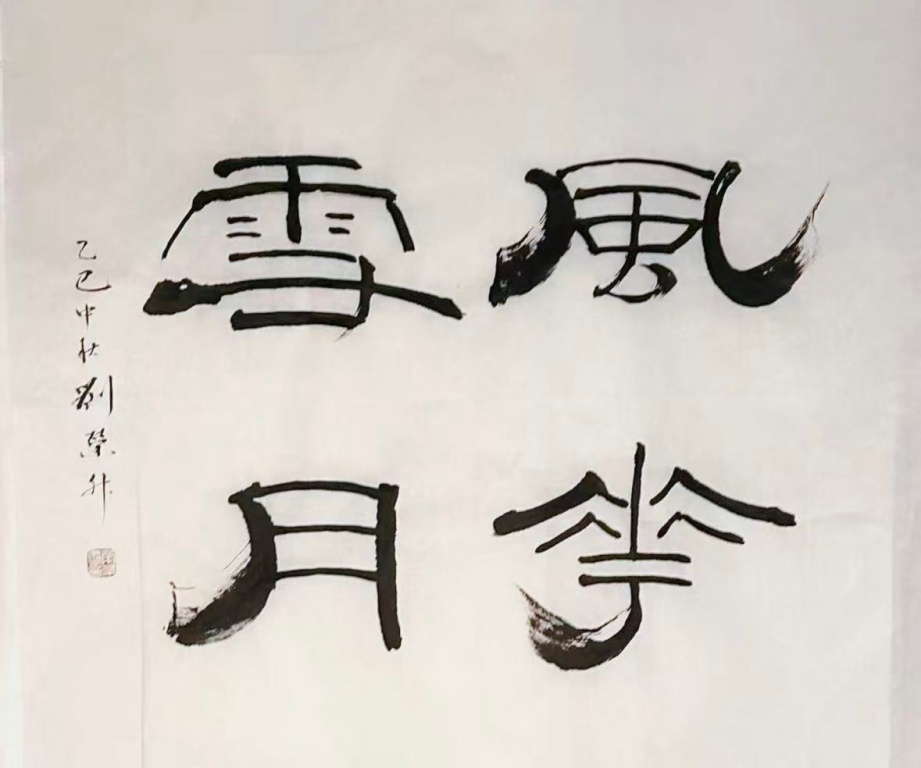 風花
雪月
乙巳中秋劉榮升